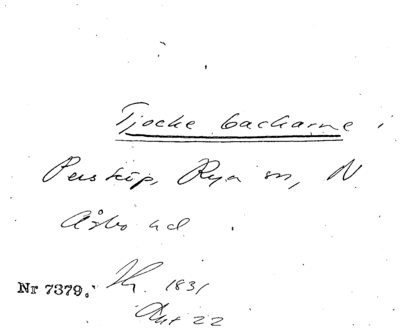 Tjocke backarne i
Perstorp, Rya sn, N
Åsbo hd.
Nr 7379. 1831
Akt 22